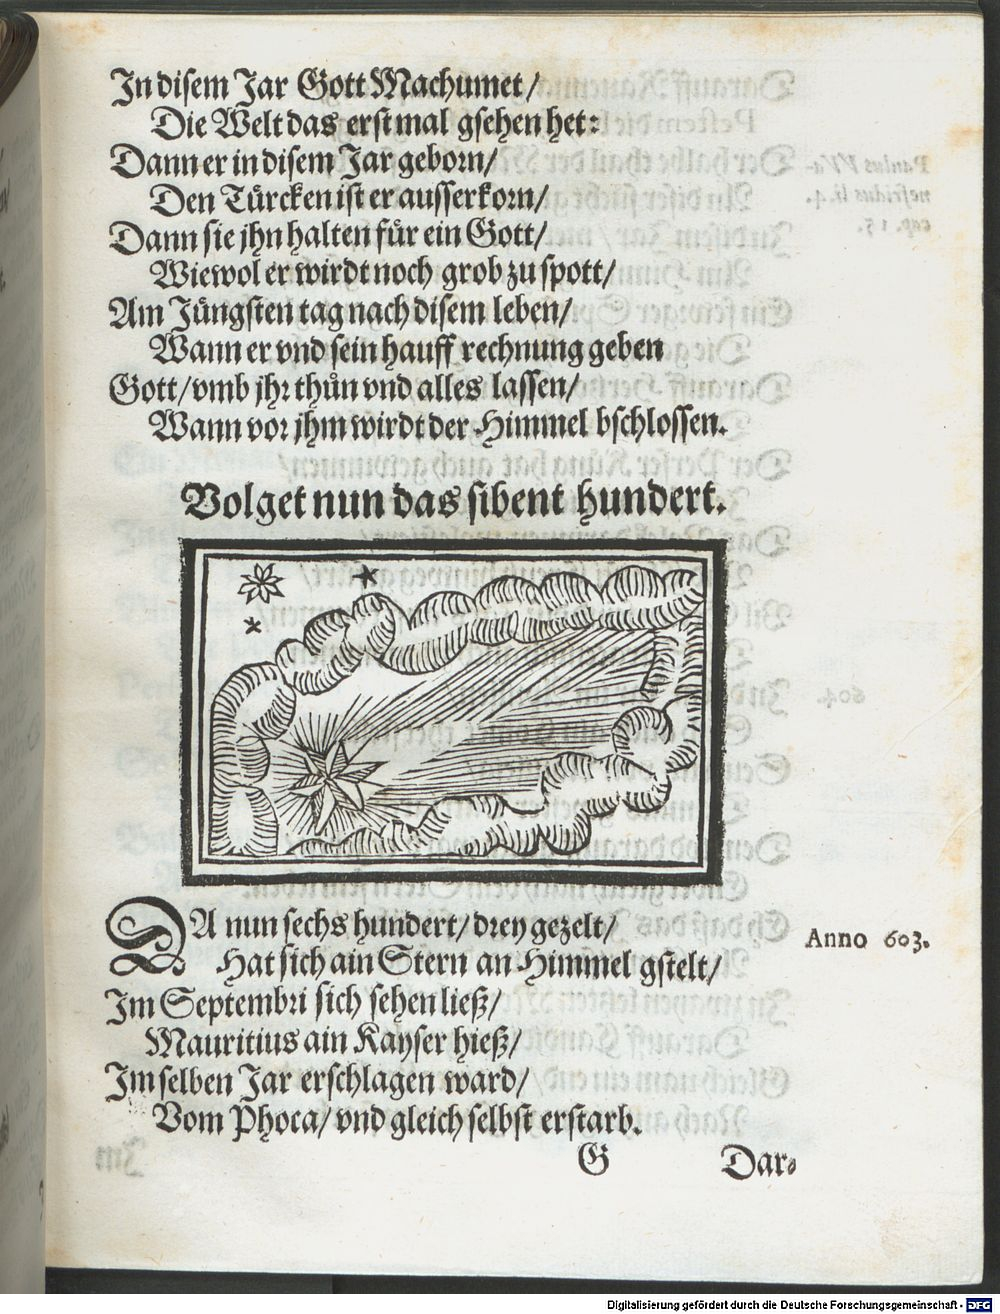 In disem Jar Gott Machumet/
Die Welt das erst mal gsehen het:
Dann er in disem Jar geborn/
Den Türcken ist er ausserkorn/
Dann sie jhn halten für ein Gott/
Wiewol er wirdt noch grob zu spott/
Am Jüngsten tag nach disem leben/
Wann er vnd sein hauff rechnung geben
Gott/ vmb jhr thůn vnd alles lassen/
Wann vor jhm wirdt der Himmel bschlossen.
Volget nun das sibent hundert.
DA nun sechs hundert/ drey gezelt/
Anno 603.
Hat sich ain Stern an Himmel gstelt/
Im Septembri sich sehen ließ/
Mauritius ain Kayser hieß/
Im selben Jar erschlagen ward/
Vom Phoca/ vnd gleich selbst erstarb.
G Dar-
Digitalisierung gefördert durch die Deutsche Forschungsgemeinschaft - DFG